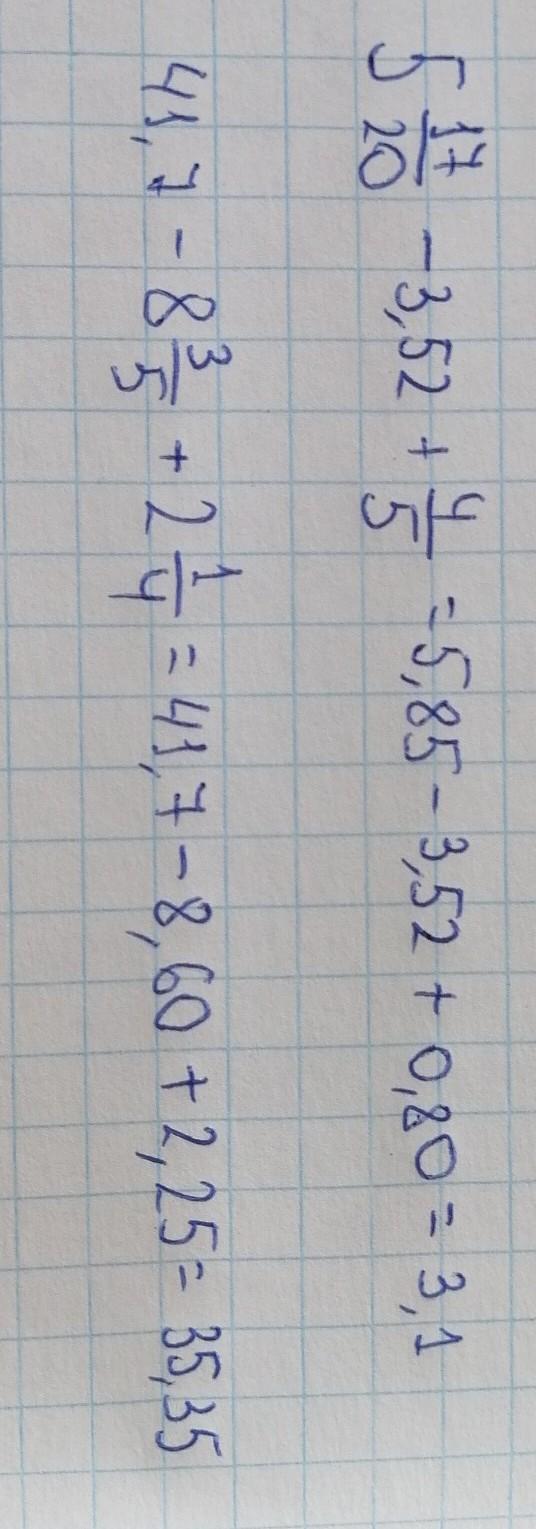 5 17/20 - 3,52 + 4/5 = 5,85 - 3,52 + 0,80 = 3,1
41,7 - 8 3/5 + 2 1/4 = 41,7 - 8,60 + 2,25 = 35,35